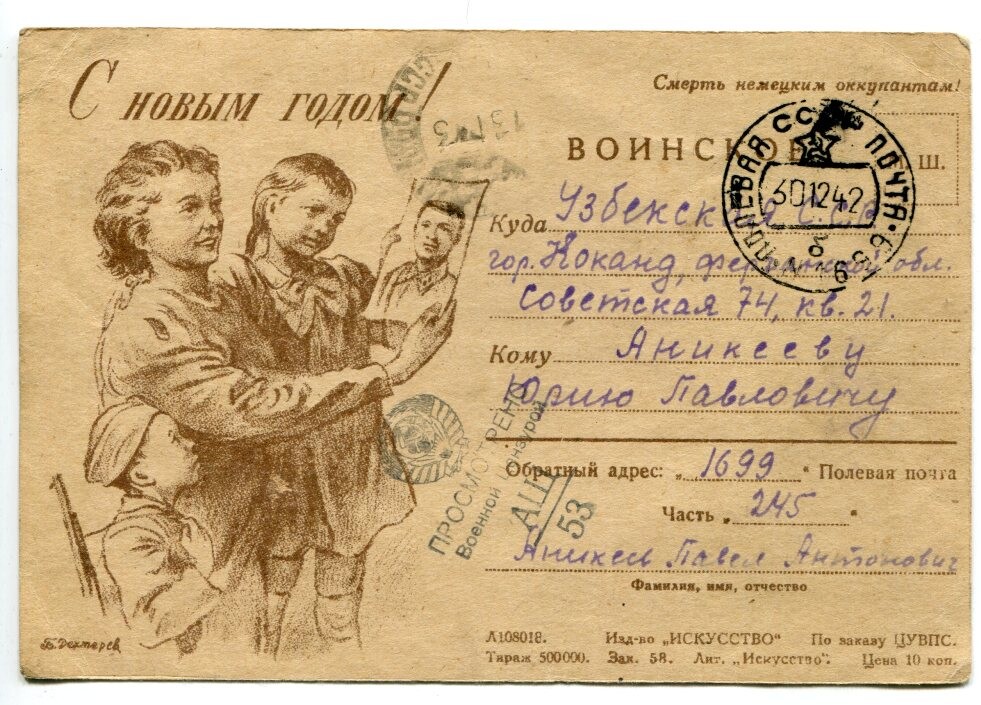 С новым годом!
Смерть немецким оккупантам!
ВОИНСКОЕ
Ш.
ПОЛЕВАЯ СССР ПОЧТА
301242
б
Куда Узбекская ССР
гор. Коканд, ферганской обл.
Советская 74, кв. 21.
Кому Аникееву
Юрию Павловичу
ПРОСМОТРЕНО
Военной Цензурой
53
Обратный адрес: „ 1699 “ Полевая почта
Часть „ 245 “
Аникеев Павел Антонович
Фамилия, имя, отчество
Б. Дехтерев
А108018. Изд-во „ИСКУССТВО“ По заказу ЦУВПС.
Тираж 500000. Зак. 58. Лит. „Искусство“. Цена 10 коп.